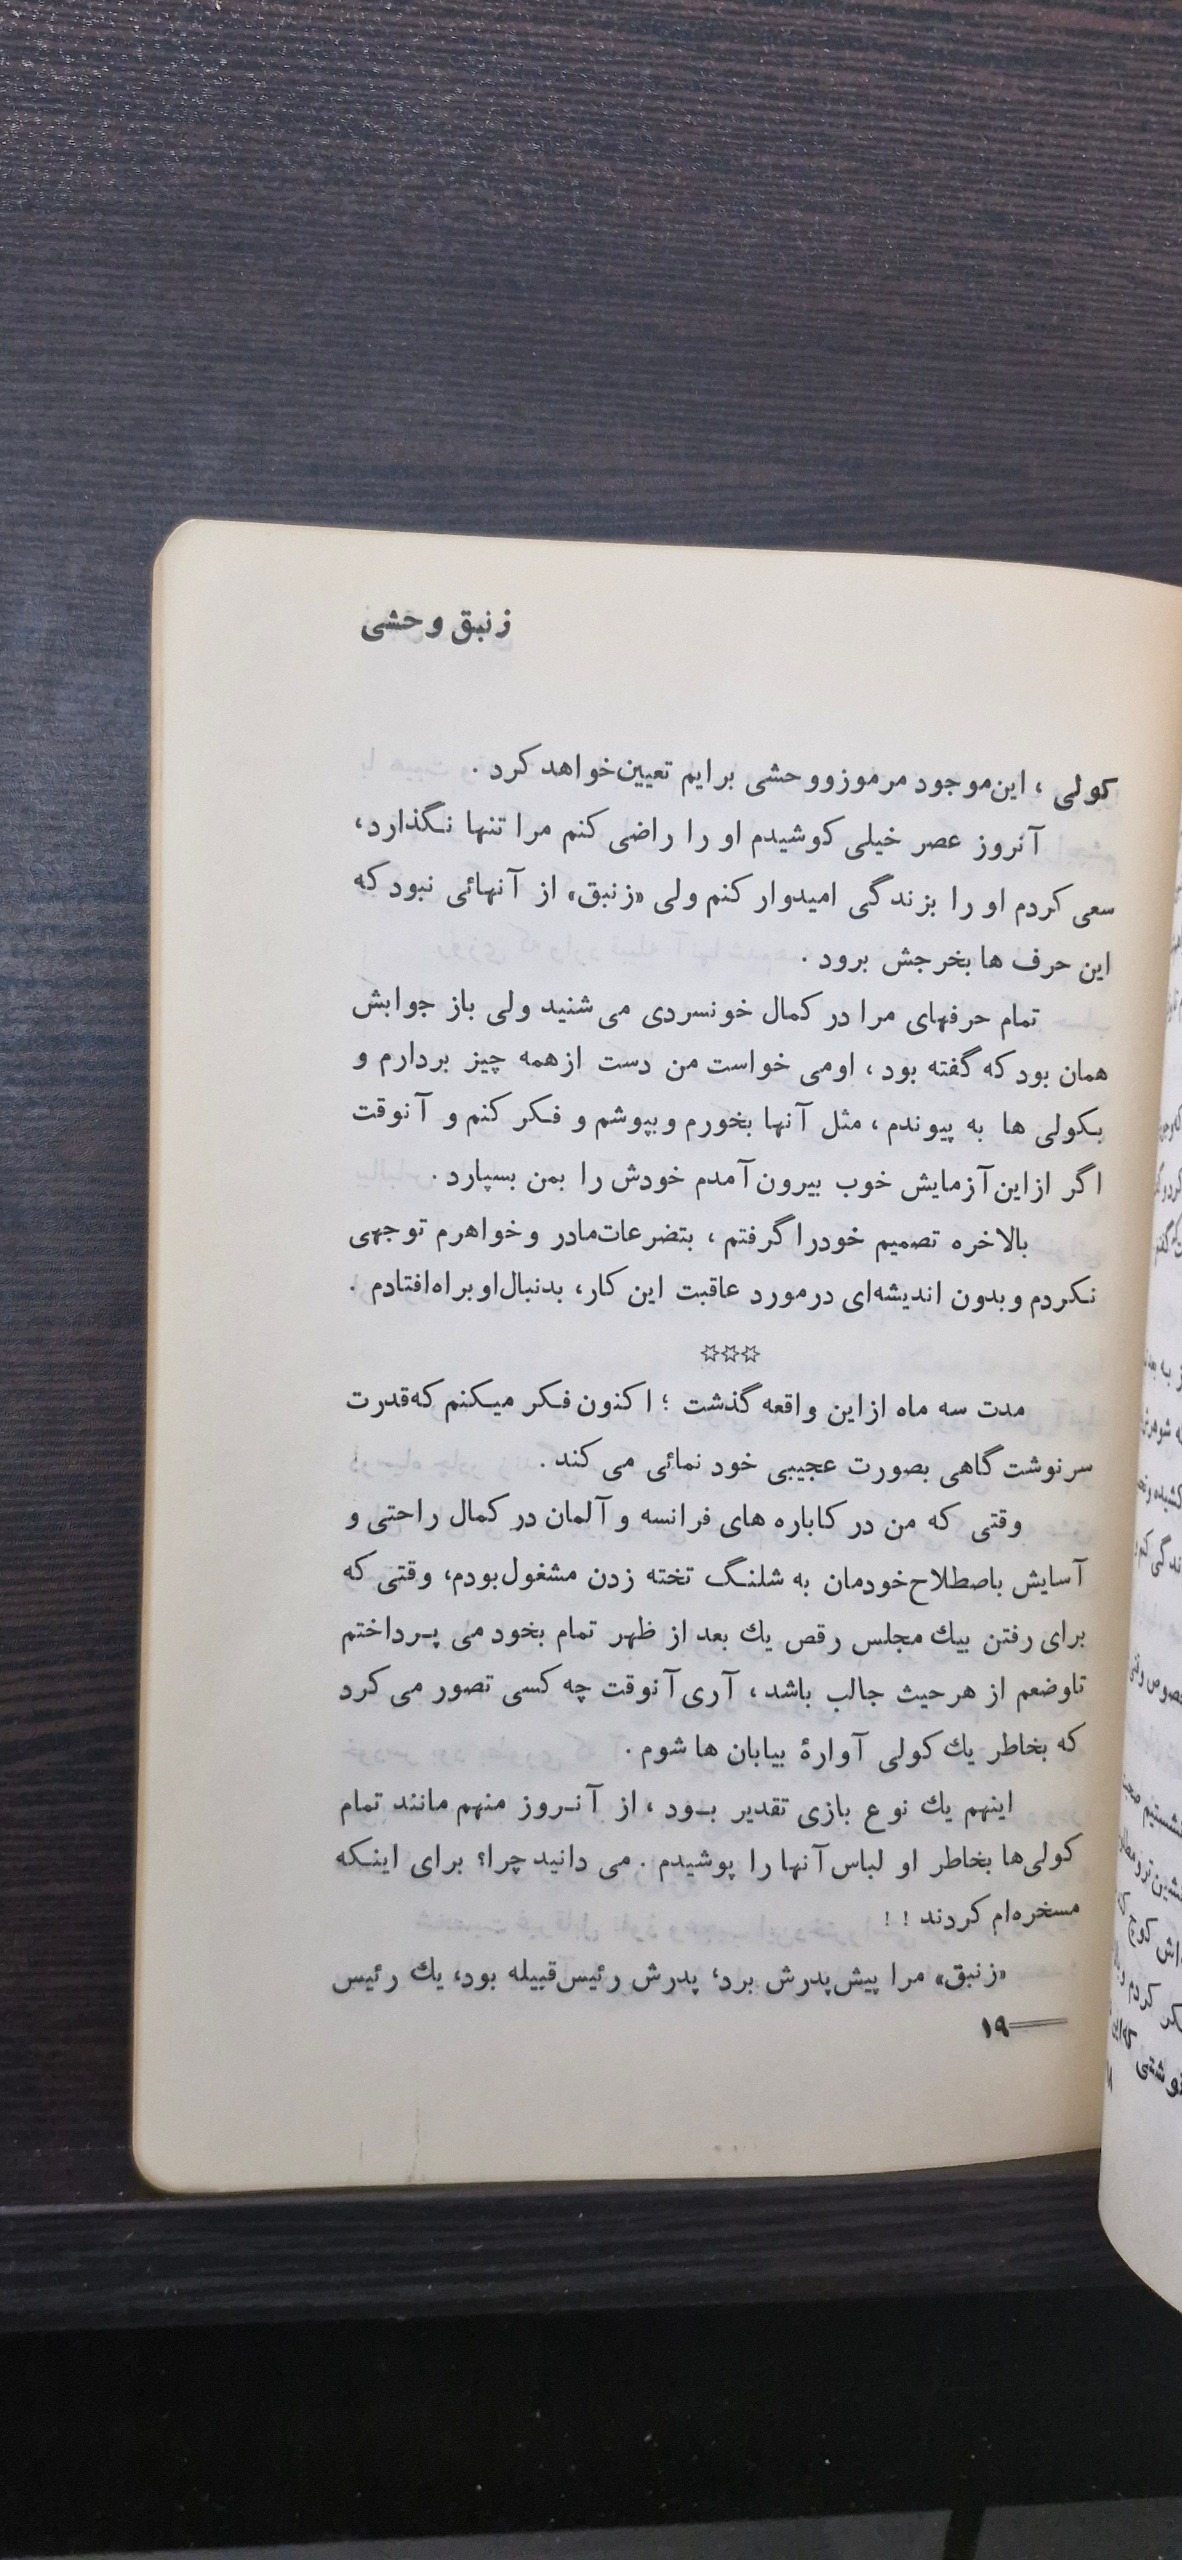 زنبق وحشی
کولی ، این‌موجود مرموزووحشی برایم تعیین‌خواهد کرد .
آنروز عصر خیلی کوشیدم او را راضی کنم مرا تنها نگذارد،
سعی کردم او را بزندگی امیدوار کنم ولی «زنبق» از آنهائی نبود که
این حرف ها بخرجش برود .
تمام حرفهای مرا در کمال خونسردی می شنید ولی باز جوابش
همان بود که گفته بود ، اومی خواست من دست ازهمه چیز بردارم و
بکولی ها به پیوندم ، مثل آنها بخورم وبپوشم و فکر کنم و آنوقت
اگر ازاین آزمایش خوب بیرون آمدم خودش را بمن بسپارد .
بالاخره تصمیم خودرا گرفتم ، بتضرعات‌مادر وخواهرم توجهی
نکردم وبدون اندیشه‌ای درمورد عاقبت این کار، بدنبال‌اوبراه‌افتادم .
☆☆☆
مدت سه ماه ازاین واقعه گذشت ؛ اکنون فکر میکنم که‌قدرت
سرنوشت گاهی بصورت عجیبی خود نمائی می کند .
وقتی که من در کاباره های فرانسه و آلمان در کمال راحتی و
آسایش باصطلاح‌خودمان به شلنگ تخته زدن مشغول‌بودم، وقتی که
برای رفتن بیك مجلس رقص یك بعد از ظهر تمام بخود می پرداختم
تاوضعم از هرحیث جالب باشد ، آری آنوقت چه کسی تصور می کرد
که بخاطر یك کولی آوارۀ بیابان ها شوم .
اینهم یك نوع بازی تقدیر بود ، از آنروز منهم مانند تمام
کولی‌ها بخاطر او لباس آنها را پوشیدم . می دانید چرا؟ برای اینکه
مسخره‌ام کردند ! !
«زنبق» مرا پیش‌پدرش برد، پدرش رئیس‌قبیله بود، یك رئیس
۱۹